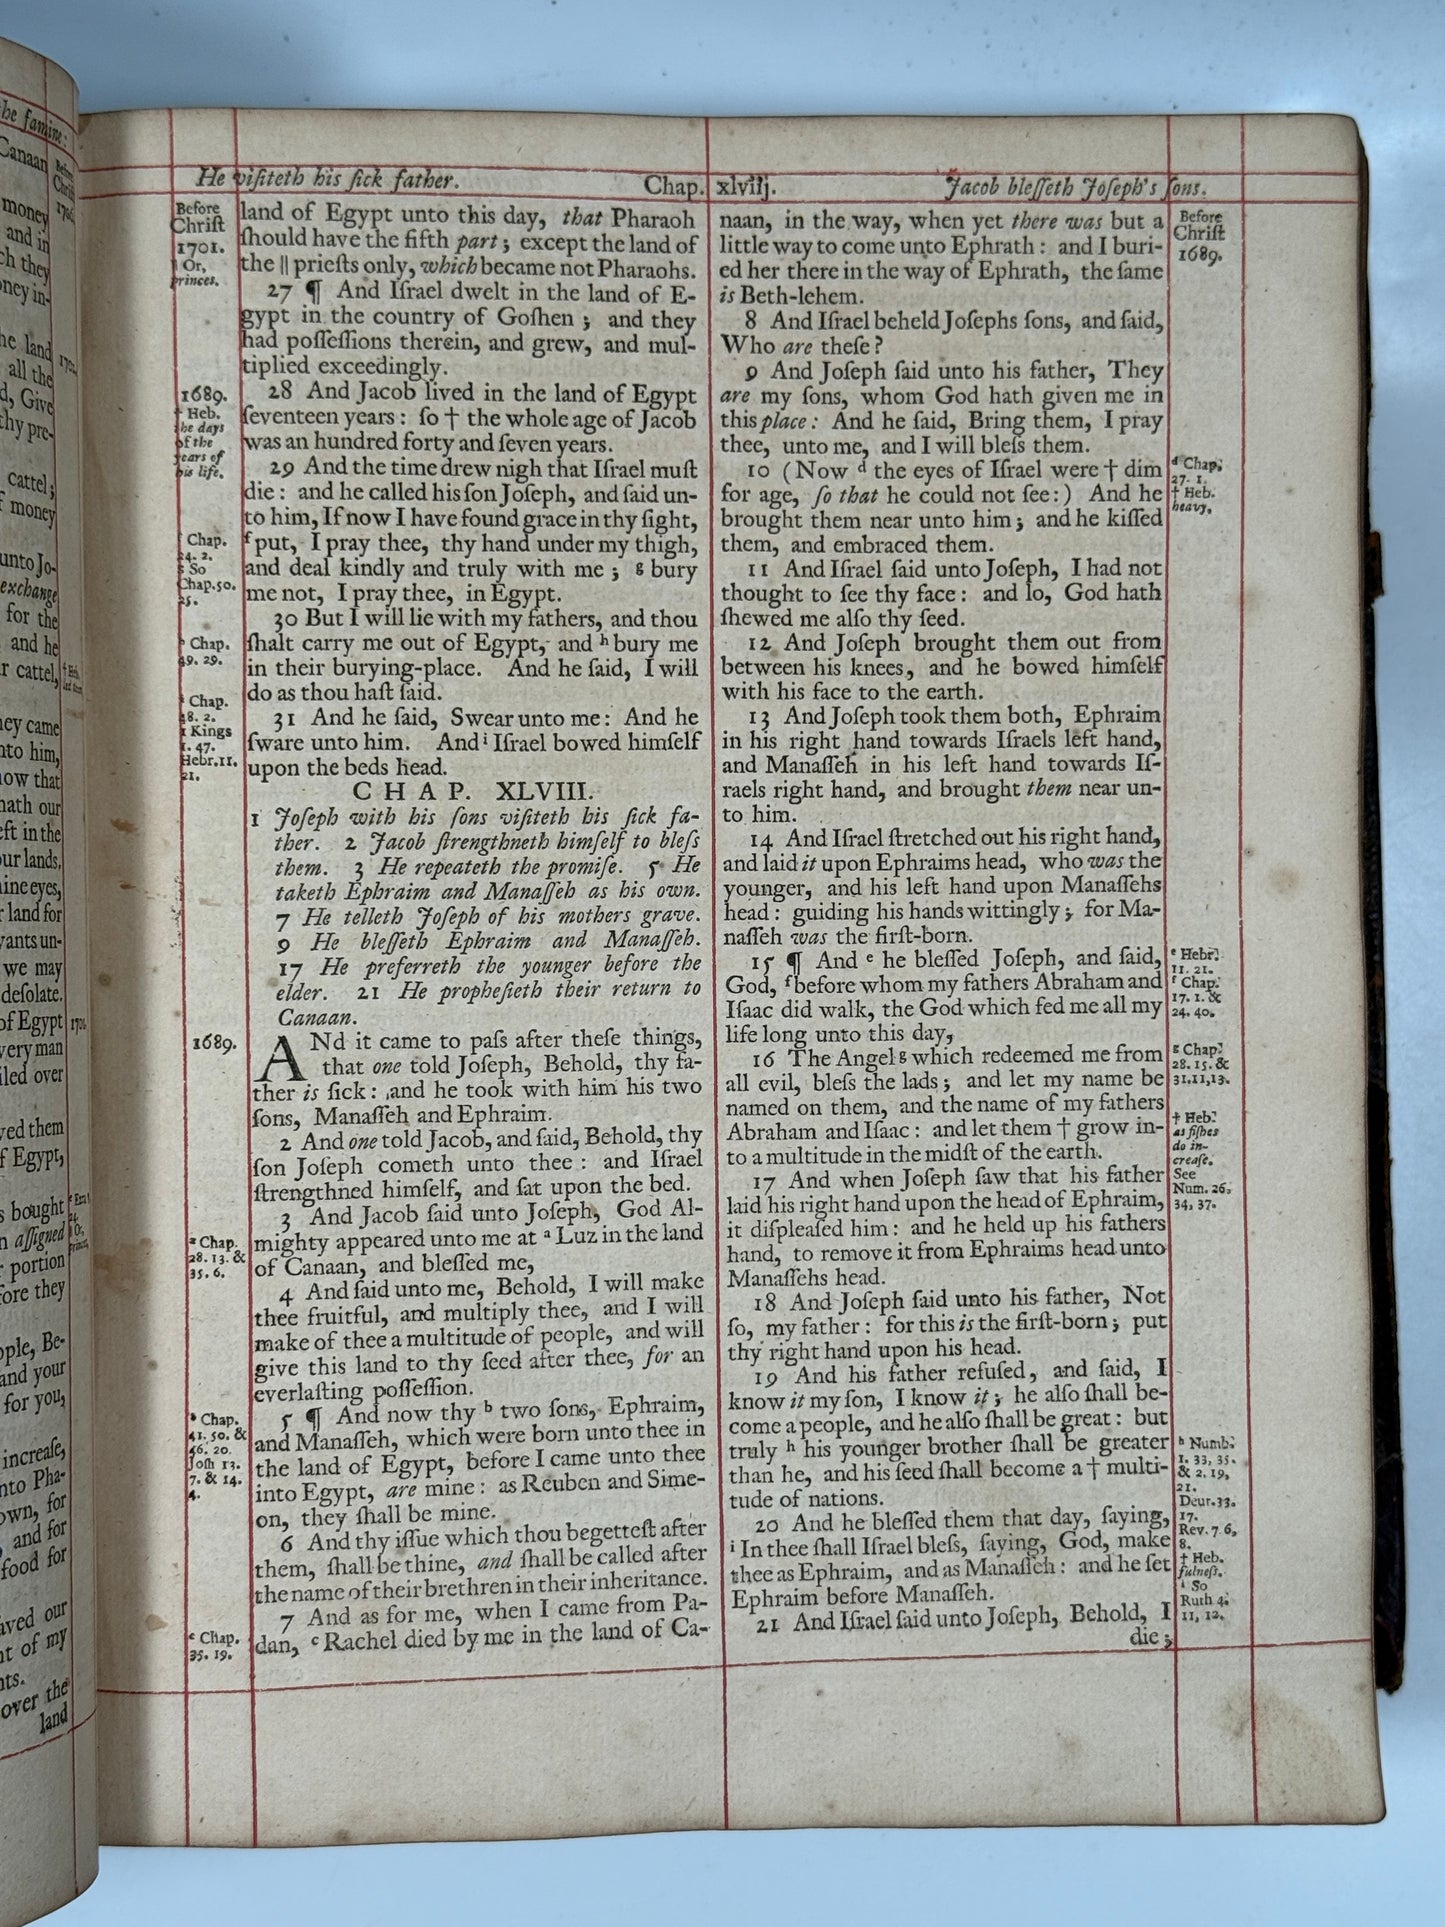 he famine:
Canaan
Before
Christ
money
and in
ch they
ney in-
he land
all the
d, Give
thy pre-
cattel;
money
unto Jo-
exchange
for the
and he
r cattel,
ney came
nto him,
now that
hath our
eft in the
ur lands.
ine eyes,
r land for
vants un-
we may
desolate.
of Egypt
very man
iled over
ved them
f Egypt,
s bought
n aſſigned
r portion
ore they
ople, Be-
and your
for you,
increaſe,
nto Pha-
own, for
and for
food for
aved our
nt of my
nts.
over the
land
He viſiteth his ſick father. Chap. xlviij. Jacob bleſſeth Joſeph's ſons.
Before
Chriſt
1701.
Or,
princes.
1689.
† Heb.
he days
of the
years of
his life.
Chap.
24. 2.
So
Chap. 50.
25.
h Chap.
49. 29.
i Chap.
48. 2.
1 Kings
1. 47.
Hebr. 11.
21.
1689.
a Chap.
28. 13. &
35. 6.
b Chap.
41. 50. &
46. 20.
Joſh 13.
7. & 14.
4.
c Chap.
35. 19.
land of Egypt unto this day, that Pharaoh
ſhould have the fifth part; except the land of
the || prieſts only, which became not Pharaohs.
27 ¶ And Iſrael dwelt in the land of E-
gypt in the country of Goſhen; and they
had poſſeſſions therein, and grew, and mul-
tiplied exceedingly.
28 And Jacob lived in the land of Egypt
ſeventeen years: ſo † the whole age of Jacob
was an hundred forty and ſeven years.
29 And the time drew nigh that Iſrael muſt
die: and he called his ſon Joſeph, and ſaid un-
to him, If now I have found grace in thy ſight,
f put, I pray thee, thy hand under my thigh,
and deal kindly and truly with me; g bury
me not, I pray thee, in Egypt.
30 But I will lie with my fathers, and thou
ſhalt carry me out of Egypt, and h bury me
in their burying-place. And he ſaid, I will
do as thou haſt ſaid.
31 And he ſaid, Swear unto me: And he
ſware unto him. And i Iſrael bowed himſelf
upon the beds head.
CHAP. XLVIII.
1 Joſeph with his ſons viſiteth his ſick fa-
ther. 2 Jacob ſtrengthneth himſelf to bleſs
them. 3 He repeateth the promiſe. 5 He
taketh Ephraim and Manaſſeh as his own.
7 He telleth Joſeph of his mothers grave.
9 He bleſſeth Ephraim and Manaſſeh.
17 He preferreth the younger before the
elder. 21 He propheſieth their return to
Canaan.
ANd it came to paſs after theſe things,
that one told Joſeph, Behold, thy fa-
ther is ſick: and he took with him his two
ſons, Manaſſeh and Ephraim.
2 And one told Jacob, and ſaid, Behold, thy
ſon Joſeph cometh unto thee: and Iſrael
ſtrengthned himſelf, and ſat upon the bed.
3 And Jacob ſaid unto Joſeph, God Al-
mighty appeared unto me at a Luz in the land
of Canaan, and bleſſed me,
4 And ſaid unto me, Behold, I will make
thee fruitful, and multiply thee, and I will
make of thee a multitude of people, and will
give this land to thy ſeed after thee, for an
everlaſting poſſeſſion.
5 ¶ And now thy b two ſons, Ephraim,
and Manaſſeh, which were born unto thee in
the land of Egypt, before I came unto thee
into Egypt, are mine: as Reuben and Sime-
on, they ſhall be mine.
6 And thy iſſue which thou begetteſt after
them, ſhall be thine, and ſhall be called after
the name of their brethren in their inheritance.
7 And as for me, when I came from Pa-
dan, c Rachel died by me in the land of Ca-
naan, in the way, when yet there was but a
little way to come unto Ephrath: and I buri-
ed her there in the way of Ephrath, the ſame
is Beth-lehem.
8 And Iſrael beheld Joſephs ſons, and ſaid,
Who are theſe?
9 And Joſeph ſaid unto his father, They
are my ſons, whom God hath given me in
this place: And he ſaid, Bring them, I pray
thee, unto me, and I will bleſs them.
10 (Now d the eyes of Iſrael were † dim
for age, ſo that he could not ſee:) And he
brought them near unto him; and he kiſſed
them, and embraced them.
11 And Iſrael ſaid unto Joſeph, I had not
thought to ſee thy face: and lo, God hath
ſhewed me alſo thy ſeed.
12 And Joſeph brought them out from
between his knees, and he bowed himſelf
with his face to the earth.
13 And Joſeph took them both, Ephraim
in his right hand towards Iſraels left hand,
and Manaſſeh in his left hand towards Iſ-
raels right hand, and brought them near un-
to him.
14 And Iſrael ſtretched out his right hand,
and laid it upon Ephraims head, who was the
younger, and his left hand upon Manaſſehs
head: guiding his hands wittingly; for Ma-
naſſeh was the firſt-born.
15 ¶ And e he bleſſed Joſeph, and ſaid,
God, f before whom my fathers Abraham and
Iſaac did walk, the God which fed me all my
life long unto this day,
16 The Angel g which redeemed me from
all evil, bleſs the lads; and let my name be
named on them, and the name of my fathers
Abraham and Iſaac: and let them † grow in-
to a multitude in the midſt of the earth.
17 And when Joſeph ſaw that his father
laid his right hand upon the head of Ephraim,
it diſpleaſed him: and he held up his fathers
hand, to remove it from Ephraims head unto
Manaſſehs head.
18 And Joſeph ſaid unto his father, Not
ſo, my father: for this is the firſt-born; put
thy right hand upon his head.
19 And his father refuſed, and ſaid, I
know it my ſon, I know it; he alſo ſhall be-
come a people, and he alſo ſhall be great: but
truly h his younger brother ſhall be greater
than he, and his ſeed ſhall become a † multi-
tude of nations.
20 And he bleſſed them that day, ſaying,
i In thee ſhall Iſrael bleſs, ſaying, God, make
thee as Ephraim, and as Manaſſeh: and he ſet
Ephraim before Manaſſeh.
21 And Iſrael ſaid unto Joſeph, Behold, I
die;
Before
Chriſt
1689.
d Chap.
27. 1.
† Heb.
heavy.
e Hebr.
11. 21.
f Chap.
17. 1. &
24. 40.
g Chap.
28. 15. &
31. 11, 13.
† Heb.
as fiſhes
do in-
creaſe.
See
Num. 26.
34, 37.
h Numb.
1. 33, 35.
& 2. 19,
21.
Deut. 33.
17.
Rev. 7 6,
8.
† Heb.
fulneſs.
i So
Ruth 4.
11, 12.